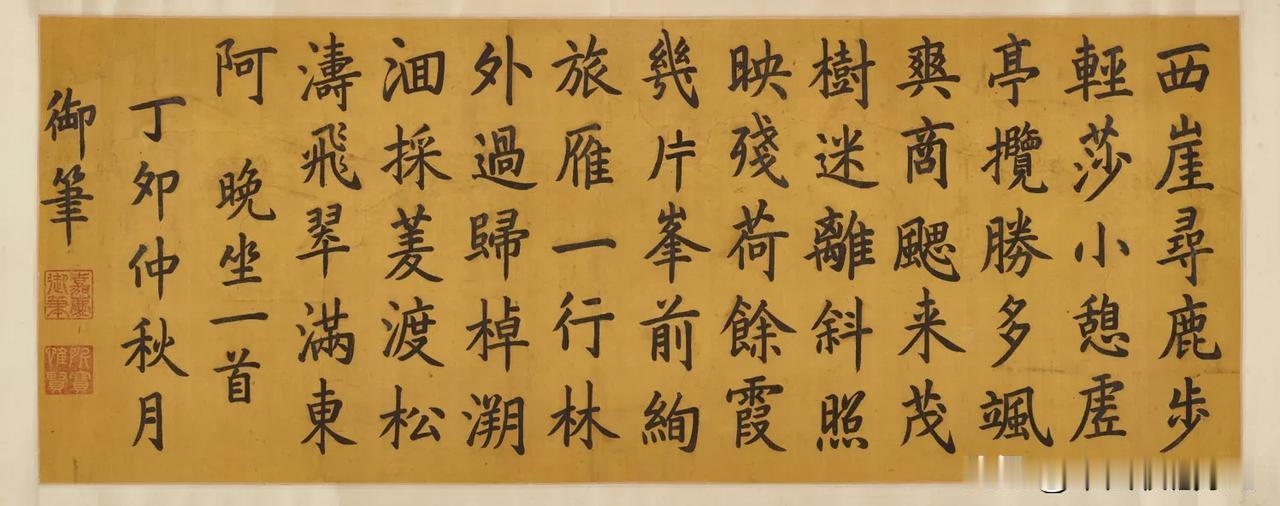 西崖尋鹿步
輕莎小憩虛
亭攬勝多颯
爽商颸来茂
樹迷離斜照
映殘荷餘霞
幾片峯前絢
旅雁一行林
外過歸棹溯
洄採菱渡松
濤飛翠滿東
阿 晚坐一首
丁卯仲秋月
御筆
嘉慶御筆
所寶惟賢